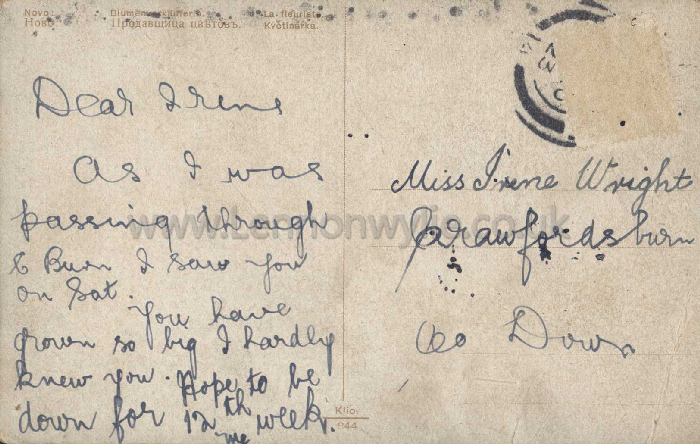 Novo: Blumenverkäuferin. La fleuriste.
Ново: Продавщица цвѣтовъ. Květinářka.
Dear Irene
As I was
passing through
C Burn I saw you
on Sat. You have
grown so big I hardly
knew you. Hope to be
down for 12th week.
me
Miss Irene Wright
Crawfordsburn
Co Down
Klio:
944
www.Lennonwylie.co.uk